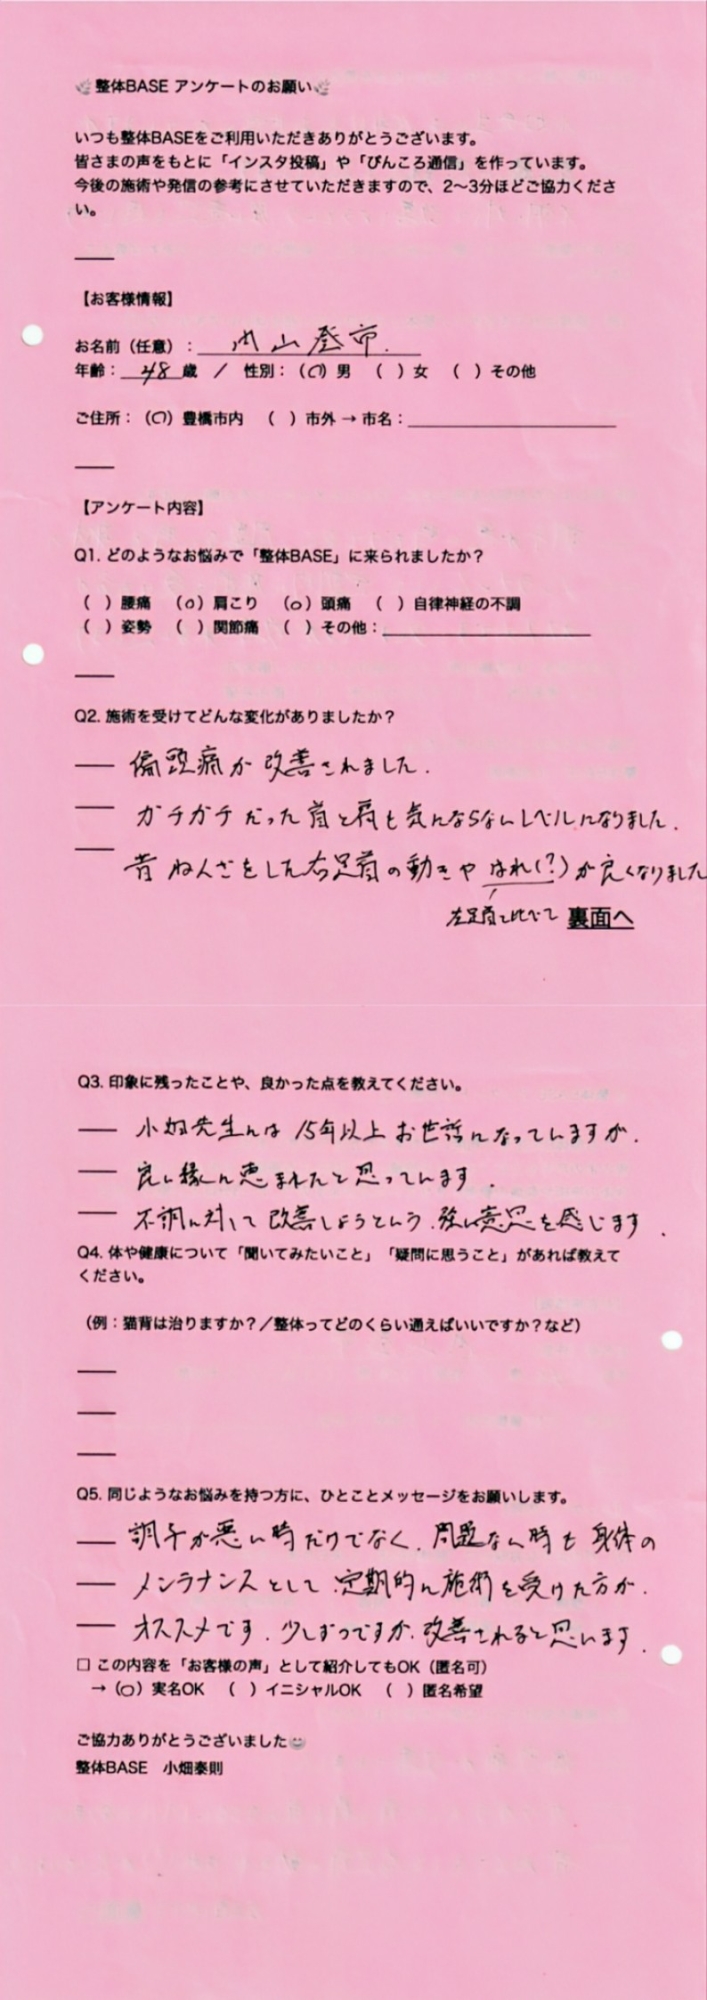 🌿 整体BASE アンケートのお願い🌿
いつも整体BASEをご利用いただきありがとうございます。
皆さまの声をもとに「インスタ投稿」や「ぴんころ通信」を作っています。
今後の施術や発信の参考にさせていただきますので、2〜3分ほどご協力くださ
い。
【お客様情報】
お名前（任意）：内山登市
年齢：48歳 ／ 性別：（○）男 （ ）女 （ ）その他
ご住所：（○）豊橋市内 （ ）市外 → 市名：
【アンケート内容】
Q1. どのようなお悩みで「整体BASE」に来られましたか？
（ ）腰痛 （○）肩こり （○）頭痛 （ ）自律神経の不調
（ ）姿勢 （ ）関節痛 （ ）その他：
Q2. 施術を受けてどんな変化がありましたか？
偏頭痛が改善されました.
ガチガチだった首と肩も気にならないレベルになりました.
昔ねんざをした右足首の動きやはれ(?)が良くなりました
左足首と比べて 裏面へ
Q3. 印象に残ったことや、良かった点を教えてください。
小畑先生には15年以上お世話になっていますが.
良い縁に恵まれたと思っています.
不調に対して改善しようという.強い意思を感じます.
Q4. 体や健康について「聞いてみたいこと」「疑問に思うこと」があれば教えて
ください。
（例：猫背は治りますか？／整体ってどのくらい通えばいいですか？など）
Q5. 同じようなお悩みを持つ方に、ひとことメッセージをお願いします。
調子が悪い時だけでなく.問題ない時も身体の
メンテナンスとして.定期的に施術を受けた方が.
オススメです.少しずつですが.改善されると思います.
□ この内容を「お客様の声」として紹介してもOK（匿名可）
→（○）実名OK （ ）イニシャルOK （ ）匿名希望
ご協力ありがとうございました😊
整体BASE 小畑泰則